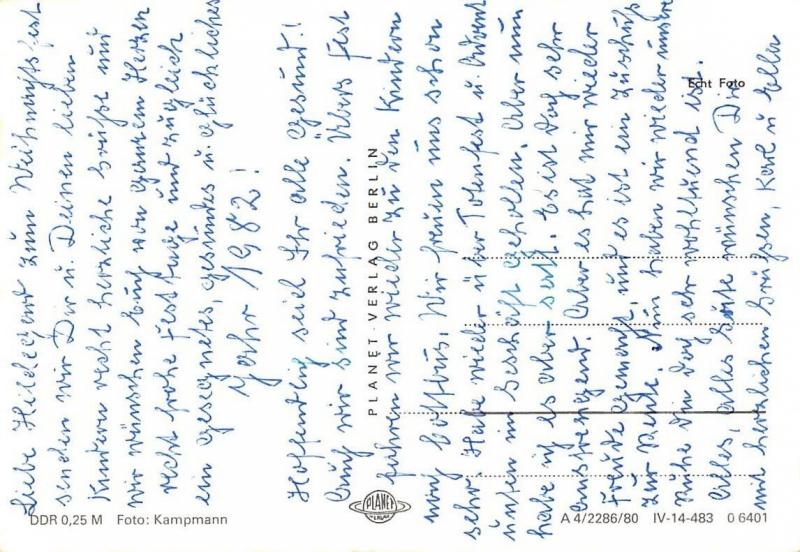 Liebe Hildegard zum Weihnachtsfest
senden wir Dir u. Deinen lieben
Kindern recht herzliche Grüße und
wir wünschen Euch von ganzem Herzen
recht frohe Festtage und zugleich
ein gesegnetes, gesundes u. glückliches
Jahr 1982!
Hoffentlich seid Ihr alle gesund.!
Auch wir sind zufrieden. Übers Fest
fahren wir wieder zu den Kindern
nach Cottbus. Wir freuen uns schon
sehr. Habe wieder über Totenfest u. Advent
unten im Geschäft geholfen. Aber nun
habe ich es aber satt. Es ist doch sehr
anstrengend. Aber es hat mir wieder
Freude gemacht, und es ist ein Zuschuß
zur Rente. Nun haben wir wieder unsre
Ruhe die doch sehr wohltuend ist.
Alles, alles Gute wünschen Dir
mit herzlichen Grüßen, Karl u Ella
Echt Foto
PLANET-VERLAG BERLIN
DDR 0,25 M Foto: Kampmann
PLANET
VERLAG
A 4/2286/80 IV-14-483 0 6401